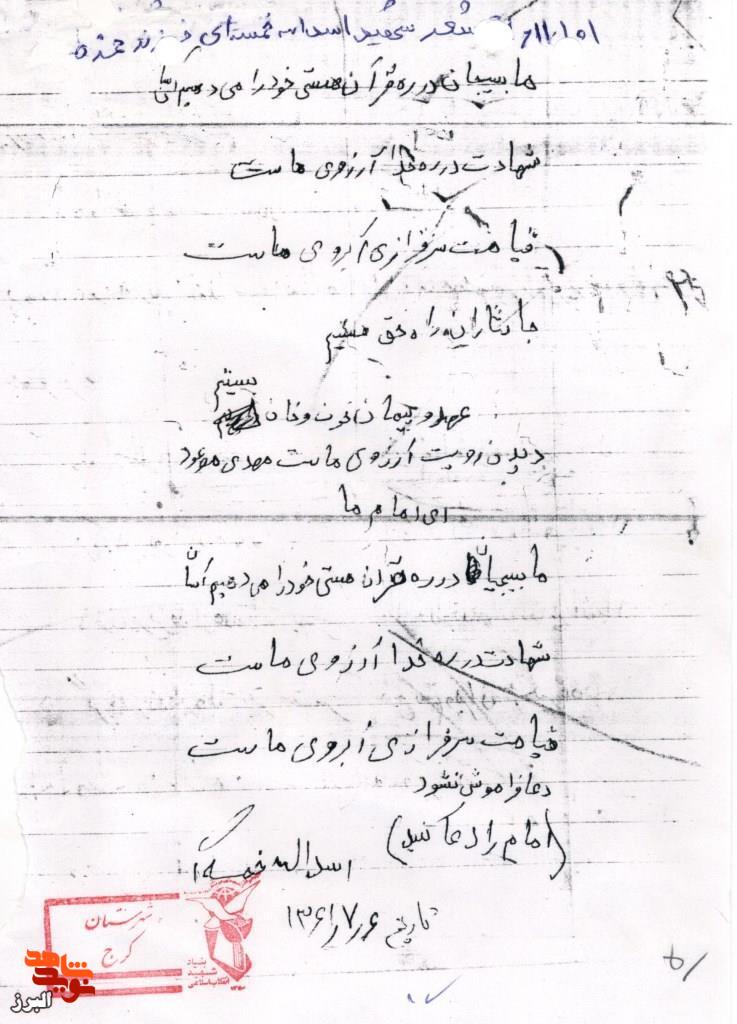 شعر شهید اسداله خمسه‌ای فرزند حمزه
ما بسیجیان در ره قرآن هستی خود را می دهیم آسان
شهادت در ره خدا آرزوی ماست
قیامت سرفرازی آبروی ماست
جانثاران راه حق هستیم
عهد و پیمان خون و خان بستیم
دیدن رویت آرزوی ماست مهدی موعود
ای امام ما
ما بسیجیان در ره قرآن هستی خود را می دهیم آسان
شهادت در ره خدا آرزوی ماست
قیامت سرفرازی آبروی ماست
دعا فراموش نشود
(امام را دعا کنید)
اسداله خمسه ای
تاریخ ۶ر۷ر۱۳۶۱
شهرستان
کرج
بنیاد
شهید
انقلاب اسلامی
نوید شاهد
البرز